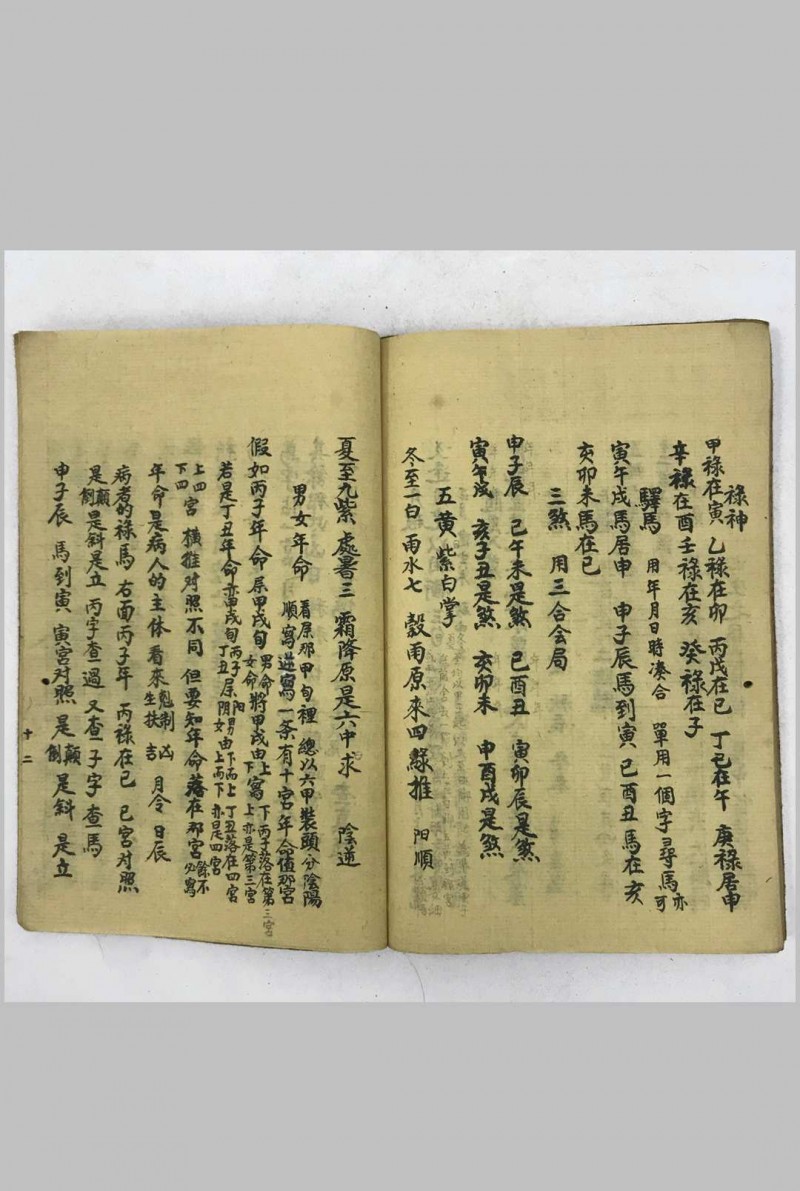 祿神
甲祿在寅 乙祿在卯 丙戊在巳 丁己在午 庚祿居申
辛祿在酉 壬祿在亥 癸祿在子
驛馬 用年月日時凑合 單用一個字尋馬亦可
寅午戌馬居申 申子辰馬到寅 巳酉丑馬在亥
亥卯未馬在巳
三煞 用三合会局
申子辰 巳午未是煞 巳酉丑 寅卯辰是煞
寅午戌 亥子丑是煞 亥卯未 申酉戌是煞
五黄 紫白掌
冬至一白 雨水七 穀雨原來四綠推 阳順
夏至九紫 處暑三 霜降原是六中求 陰逆
男女年命 看屬那甲旬裡 總以六甲裝頭 分陰陽
順寫逆寫一条有十宮年命值那宮
假如丙子年命屬甲戌旬 男命將甲戌由上寫下丙子落在第三宮
女命 由下寫上亦是第三宮
若是丁丑年命亦甲戌旬 丙子阳男由下而上 丁丑落在四宮
丁丑屬阴女由上而下 亦是四宮
上四下四宮 橫推对照不同 但要知年命落在那宮 餘不必寫
年命是病人的主体看來 尅制凶 生扶吉 月令日辰
病者的祿馬 右面丙子年 丙祿在巳 巳宮对照
是顛倒是斜是立 丙字查過 又查子字查馬
申子辰 馬到寅 寅宮对照 是顛倒是斜 是立
十二